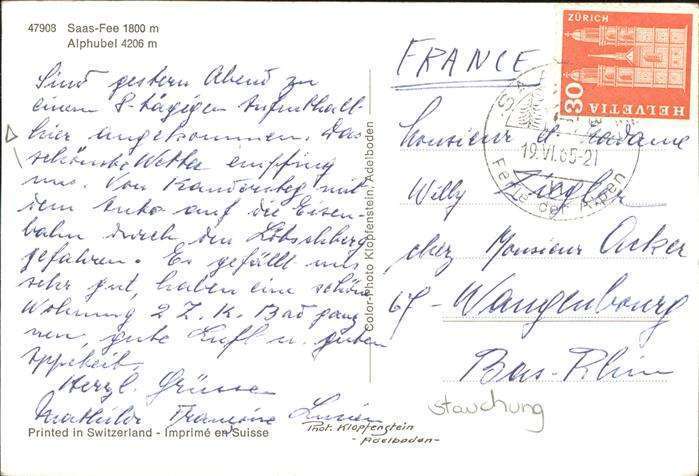 47908 Saas-Fee 1800 m
Alphubel 4206 m
Sind gestern Abend zu
einem 8-tägigen Aufenthalt
hier angekommen. Das
schönste Wetter empfing
uns. Von Kandersteg mit
dem Auto auf die Eisen-
bahn durch den Lötschberg
gefahren. Es gefällt uns
sehr gut, haben eine schöne
Wohnung 2 Z. K. Bad
nen, gute Luft u. guten
Appetit.
Herzl. Grüsse
Mathilde Françoise Lucien
Printed in Switzerland - Imprimé en Suisse
Phot. Klopfenstein
- Adelboden -
Color-Photo Klopfenstein, Adelboden
FRANCE
ZÜRICH
80
HELVETIA
19.VI.65-21
Perle der Alpen
Monsieur et Madame
Willy Ziegler
chez Monsieur Acker
67 - Wangenbourg
Bas-Rhin
Stauchung